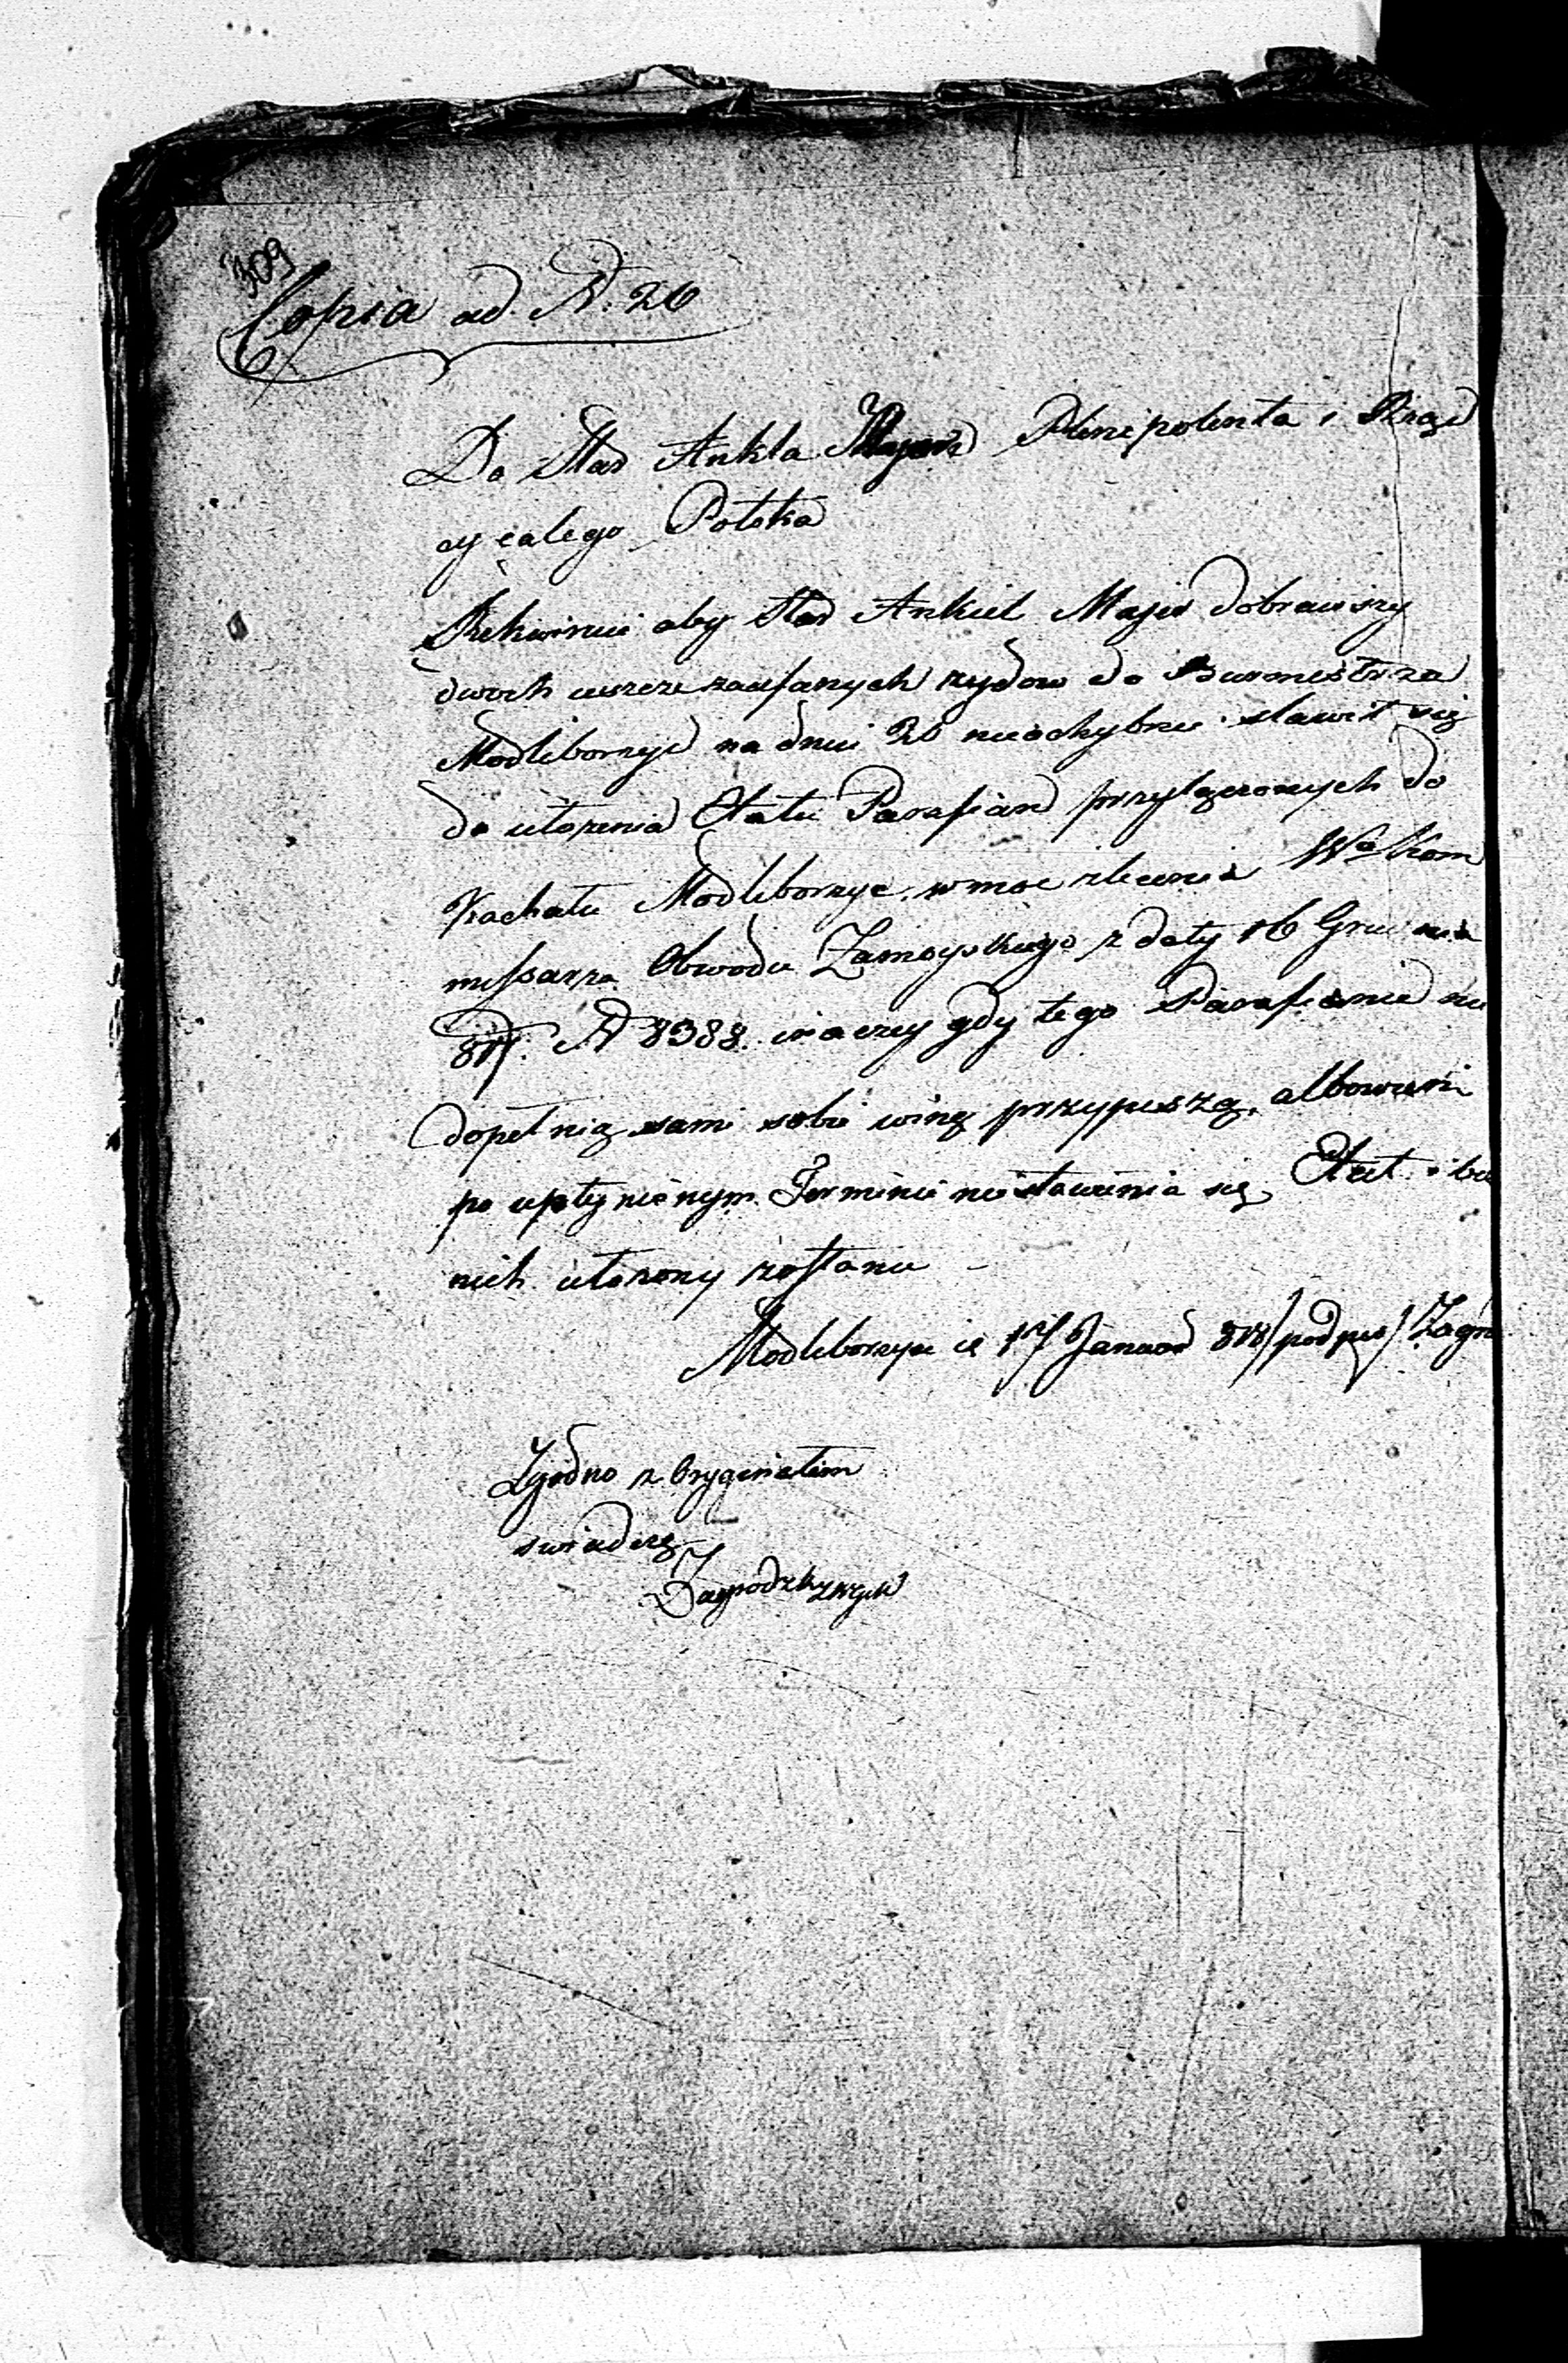 309
Copia ad. N: 26
Do Star Ankla Majera Plenipotenta i Rząd
cy całego Potoka
Rekwiruie aby Star Ankiel Majer dobrawszy
dwoch ieszcze zaufanych zydow do Burmestrza
Modliborzyc na dniu 20 nieochybnie stawił się
do ułożenia Etatu Parafian przyłączonych do
Kachału Modliborzyc. w moc zlecenia Wo Kom
missarza Obwodu Zamoyskiego z daty 16 Grudnia
817. N 8388. inaczey gdy tego Parafianie nie
dopełnią sami sobie winę przypiszą. albowiem
po upłynionym Terminie niestawienia się Etat i bez
nich ułożony zostanie –
Modliborzyce d 17 Januar 818 /podpis/ Zagro
Zgodno z Oryginałem
swiadczę